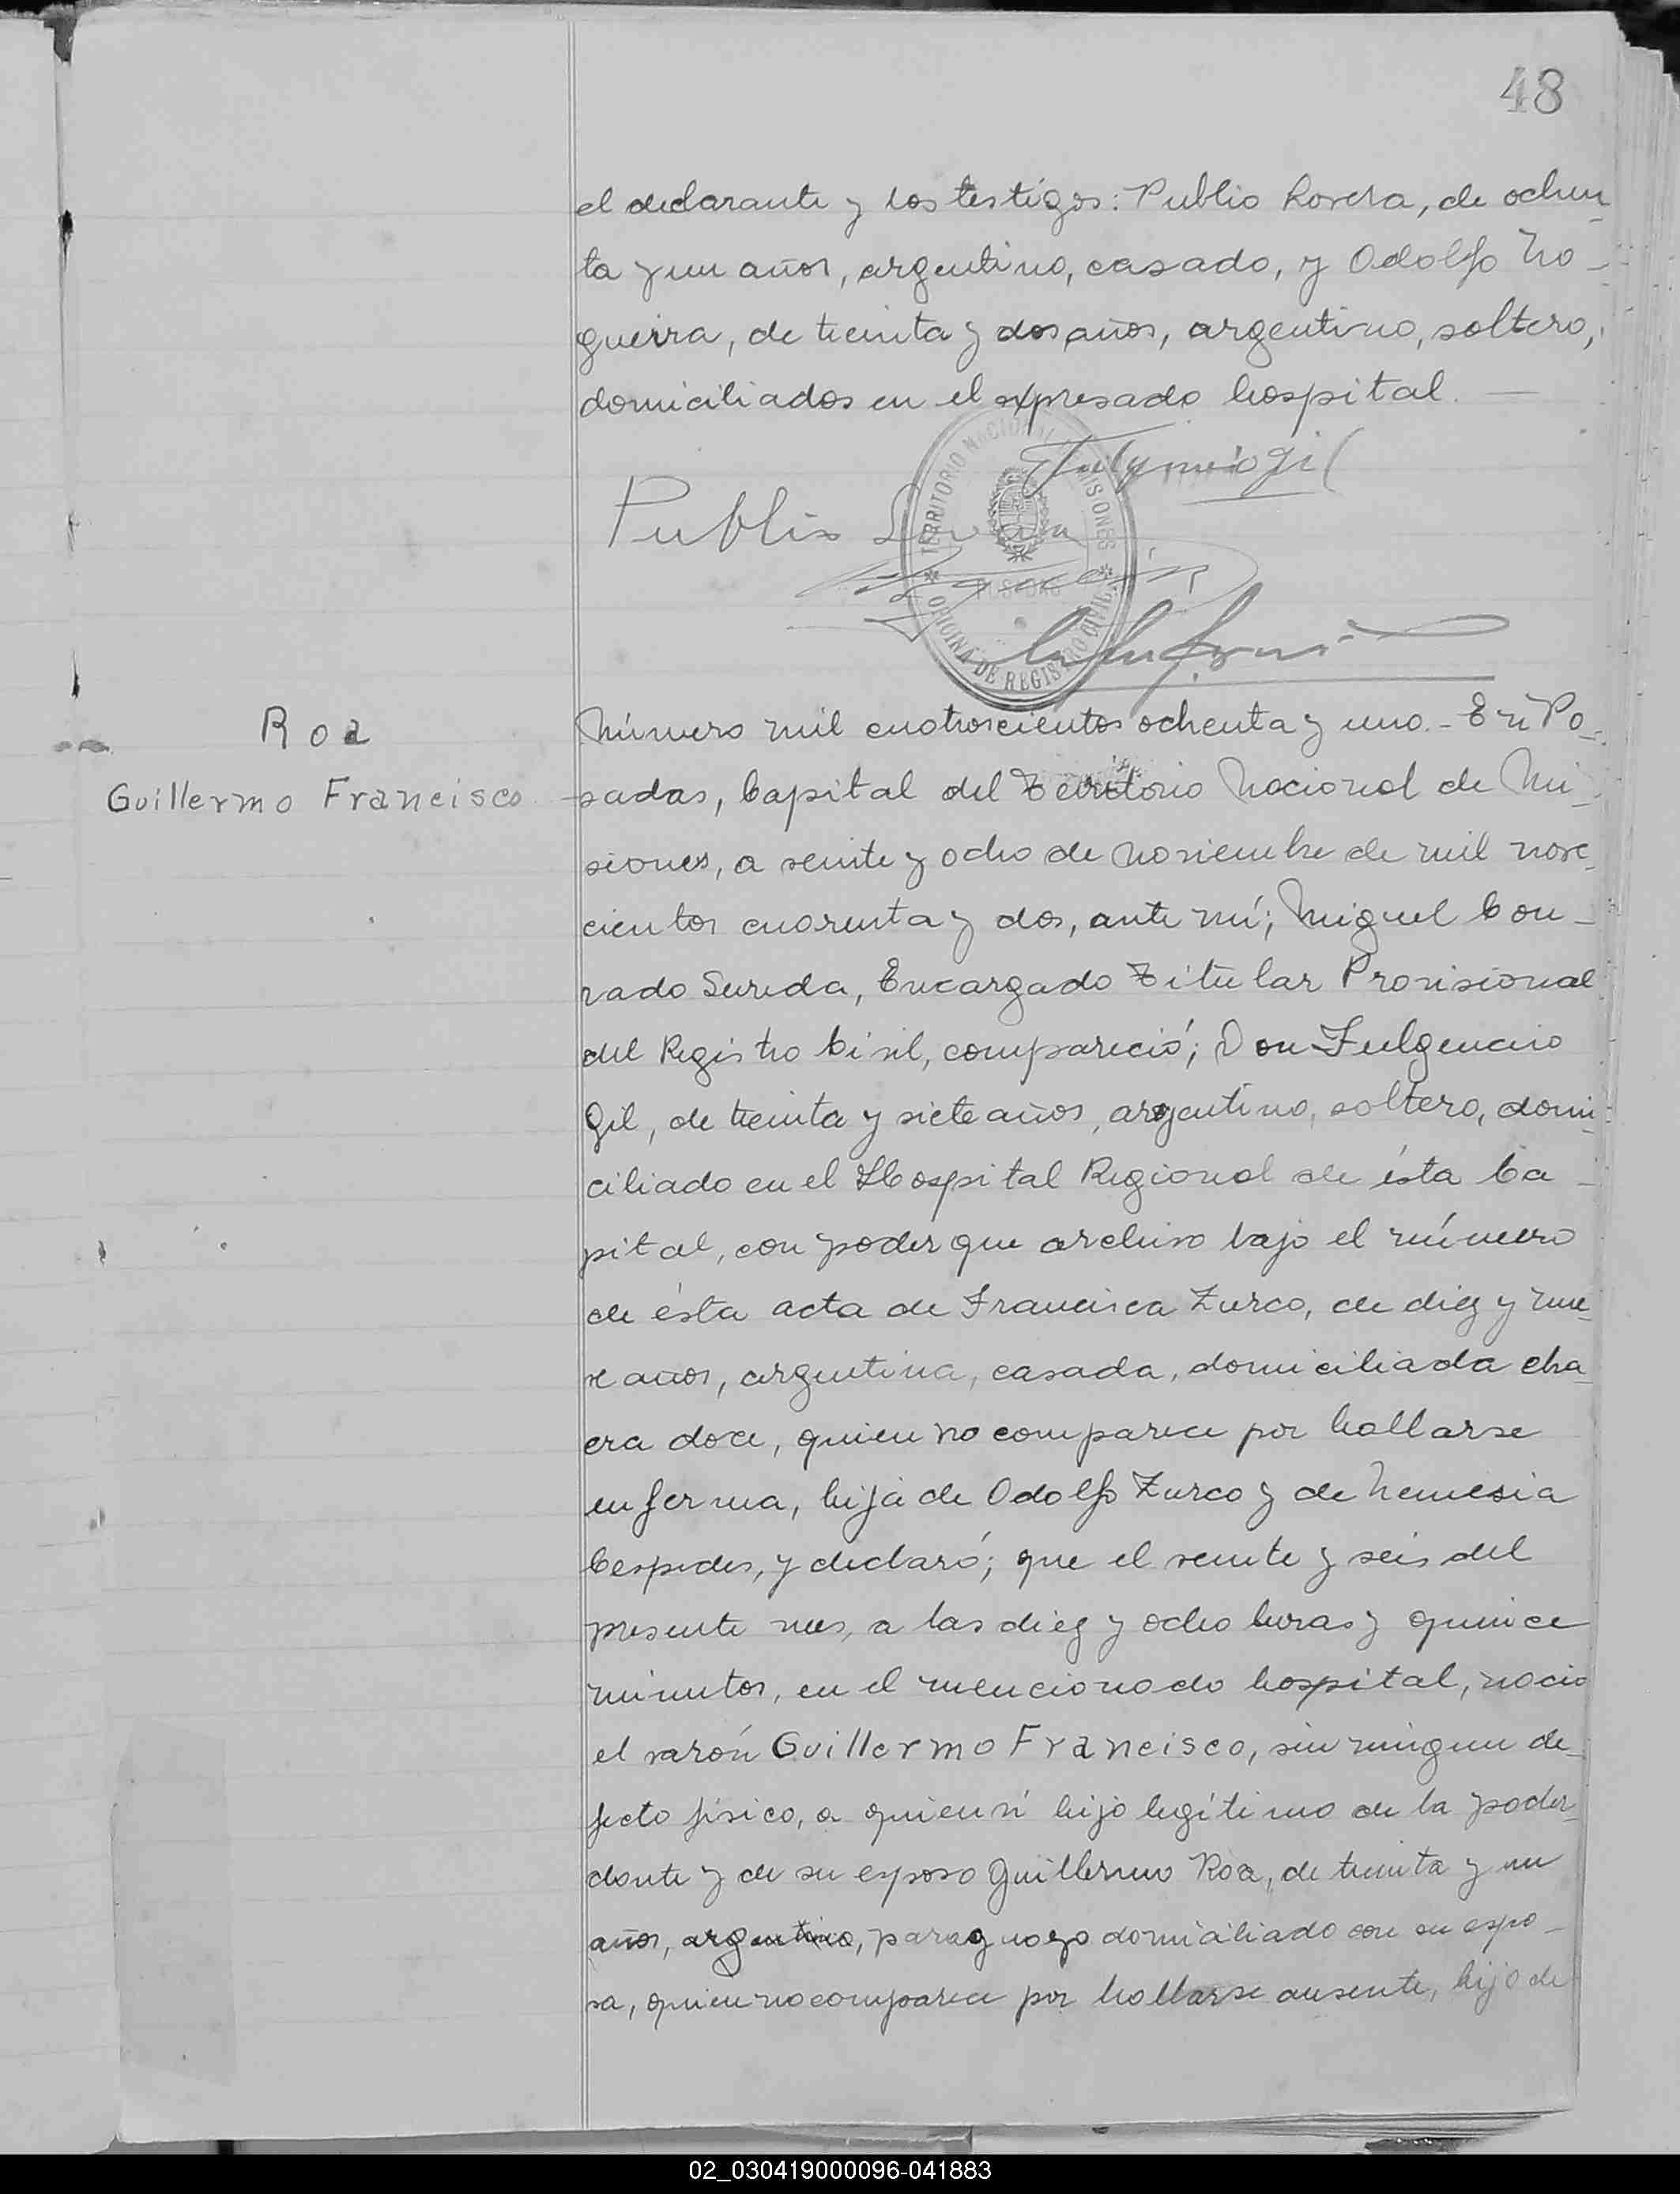 48
el declarante y los testigos: Publio Lovera, de ochen-
ta y un años, argentino, casado, y Odolfo No-
gueira, de treinta y dos años, argentino, soltero,
domiciliados en el expresado hospital.
Fulgencio Gil
Publio
TERRITORIO NACIONAL MISIONES
POSADAS
OFICINA DE REGISTRO CIVIL
Roa
Guillermo Francisco
Número mil cuatroscientos ochenta y uno.- En Po-
sadas, Capital del Territorio Nacional de Mi-
siones, a veinte y ocho de noviembre de mil nove-
cientos cuarenta y dos, ante mí; Miguel Con-
rado Sureda, Encargado Titular Provisional
del Registro Civil, compareció; Don Fulgencio
Gil, de treinta y siete años, argentino, soltero, domi-
ciliado en el Hospital Regional de ésta Ca-
pital, con poder que archivo bajo el número
de ésta acta de Francisca Zurco, de diez y nue-
ve años, argentina, casada, domiciliada cha-
cra doce, quien no comparece por hallarse
enferma, hija de Odolfo Zurco y de Nemesia
Cespedes, y declaró; que el veinte y seis del
presente mes, a las diez y ocho horas y quince
minutos, en el mencionado hospital, nació
el varón Guillermo Francisco, sin ningun de-
fecto físico, a quien ví hijo legítimo de la poder-
dante y de su esposo Guillermo Roa, de treinta y un
años, argentino, paraguayo domiciliado con su espo-
sa, quien no comparece por hallarse ausente, hijo de
02_030419000096-041883